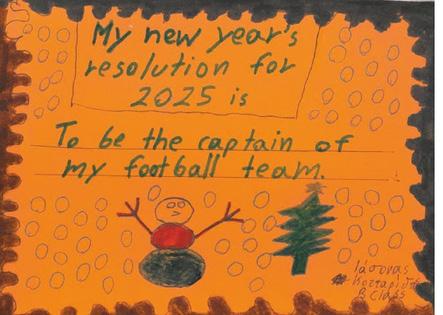 My new year's
resolution for
2025 is
To be the captain of
my football team.
Ιάσονας
B class